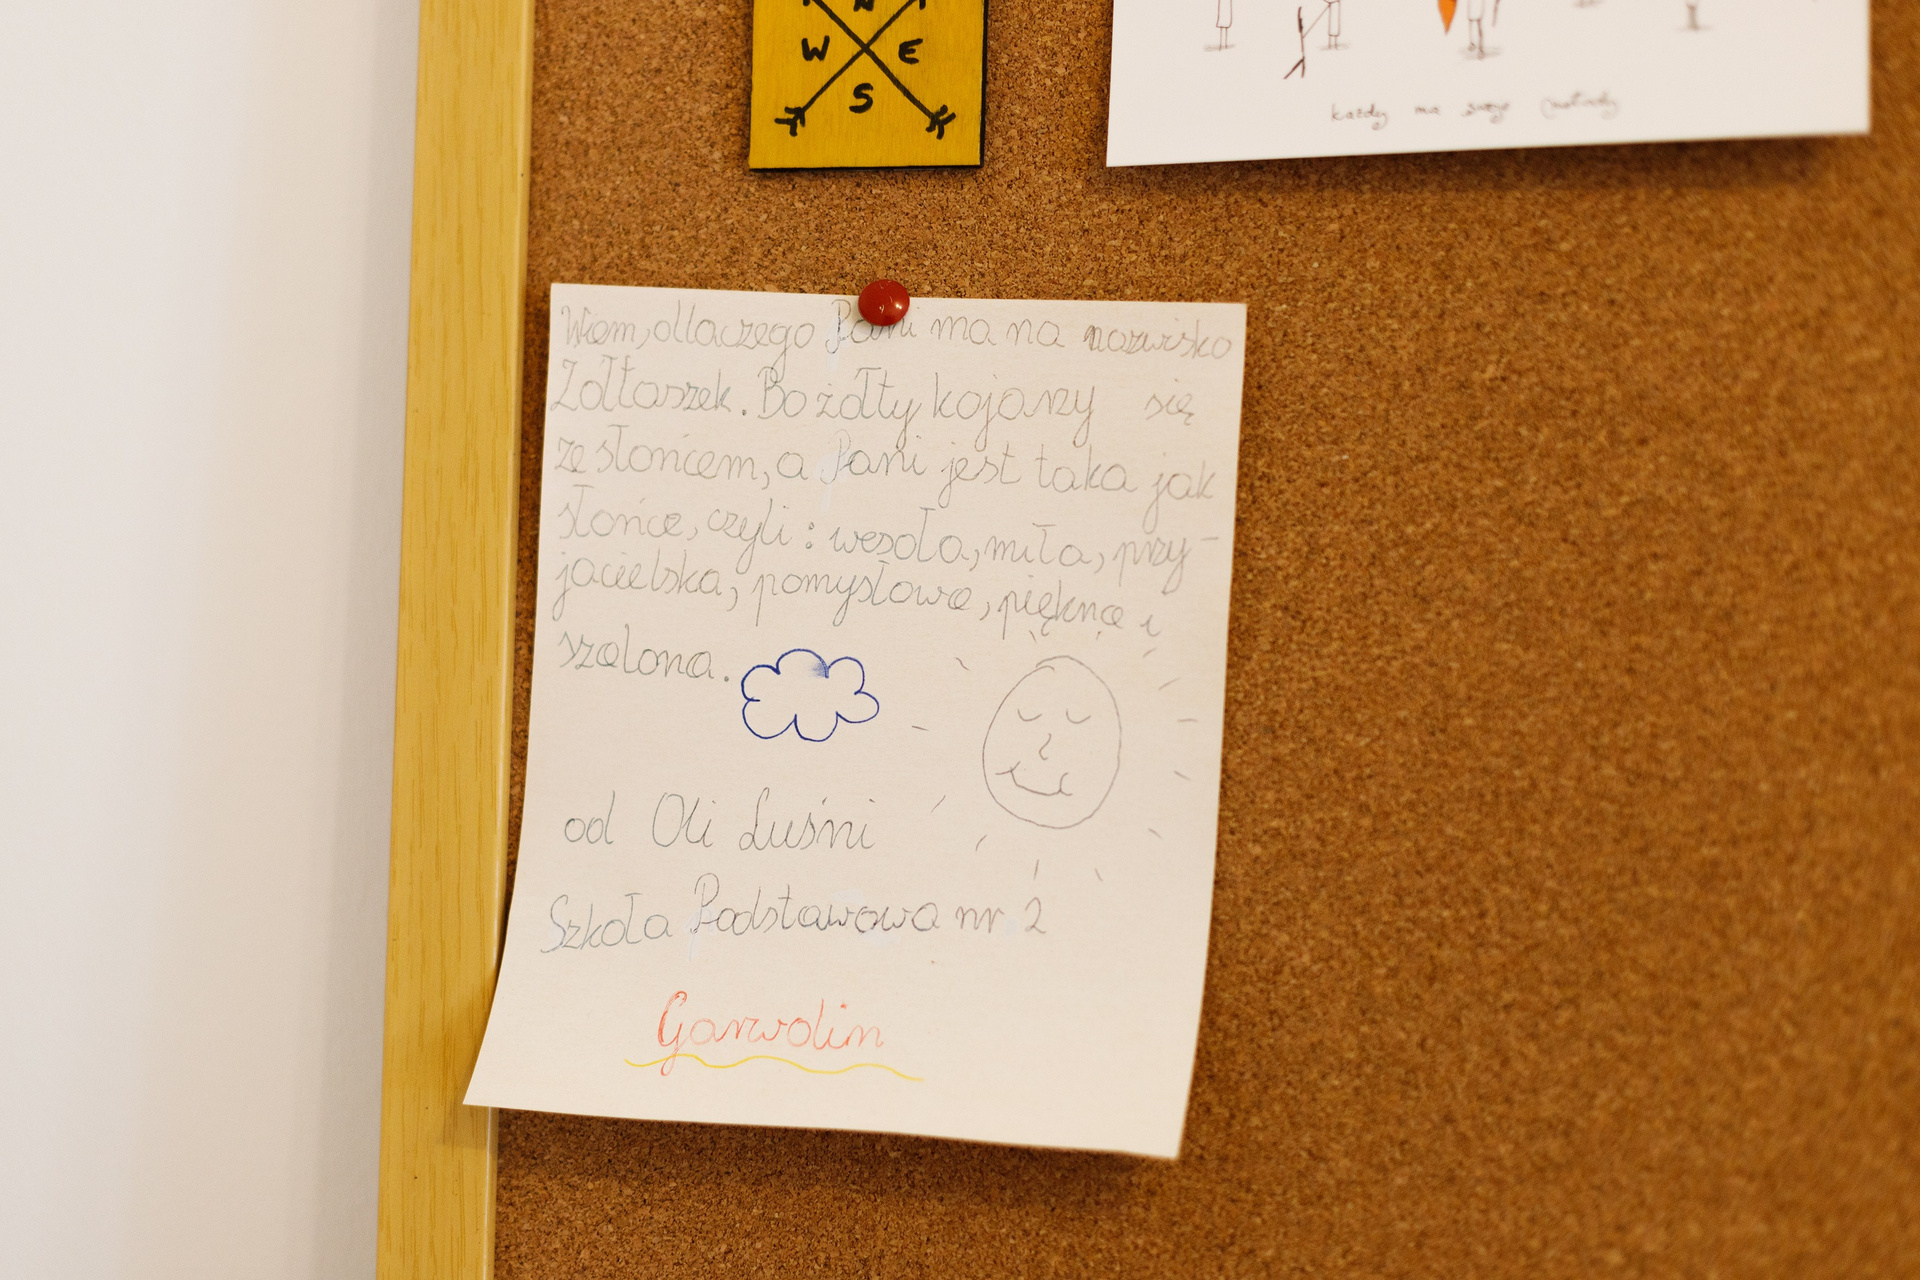 N
W E
S
każdy ma swoje
Wiem, dlaczego Pani ma na nazwisko
Żółtaszek. Bo żółty kojarzy się
ze słońcem, a Pani jest taka jak
słońce, czyli: wesoła, miła, przy-
jacielska, pomysłowa, piękna i
szalona.
od Oli Luśni
Szkoła Podstawowa nr 2
Garwolin